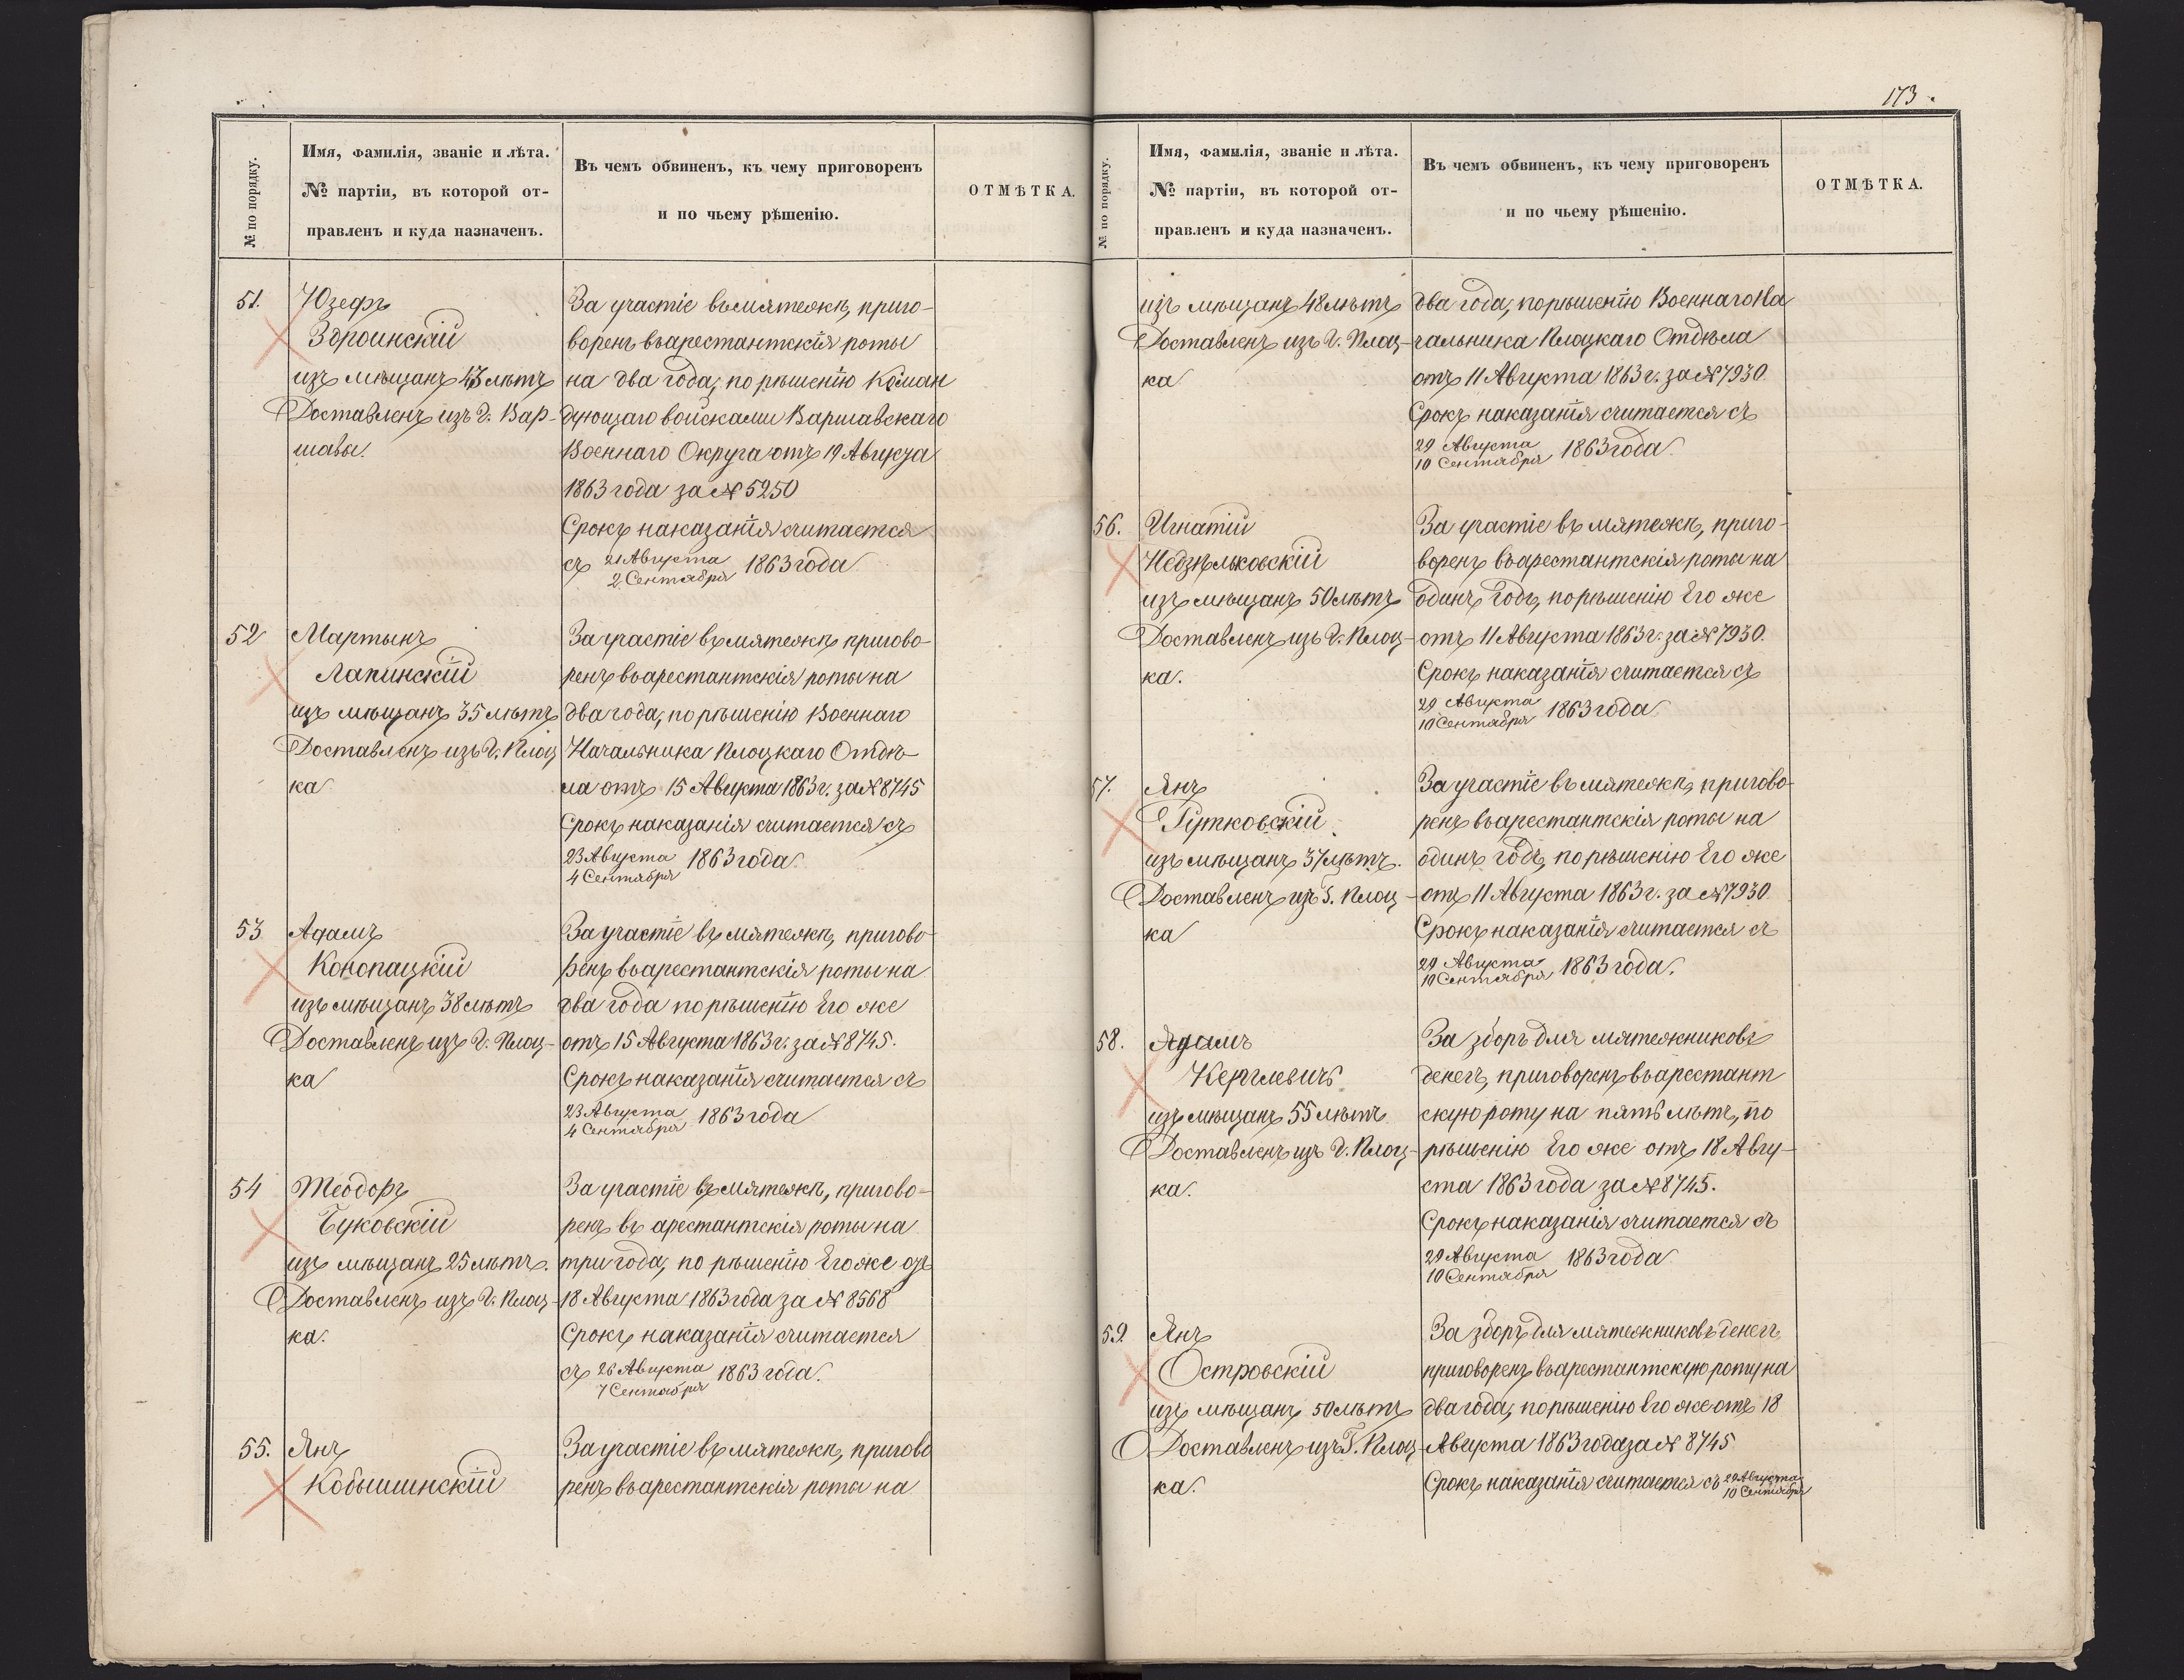 № по порядку.
Имя, фамилія, званіе и лѣта.
№ партіи, въ которой от-
правленъ и куда назначенъ.
Въ чемъ обвиненъ, къ чему приговоренъ
и по чьему рѣшенію.
ОТМѢТКА.
51.
Юзефъ
Здроинскій
изъ мѣщанъ лѣтъ
Доставленъ изъ г. Вар-
шавы.
За участіе въ мятежѣ, приго-
воренъ въ арестантскія роты
на два года, по рѣшенію Коман
дующаго войсками Варшавскаго
Военнаго Округа отъ 19 Августа
1863 года за № 5250
Срокъ наказанія считается
съ 21 Августа 1863 года
2 Сентября
52
Мартынъ
Лапинскій
изъ мѣщанъ 35 лѣтъ
Доставленъ изъ г. Плоц
ка
За участіе въ мятежѣ пригово-
ренъ въ арестантскія роты на
два года, по рѣшенію Военнаго
Начальника Плоцкаго Отдѣ-
ла отъ 15 Августа 1863 г. за № 8745
Срокъ наказанія считается съ
23 Августа 1863 года.
4 Сентября
53
Адамъ
Конопацкій
изъ мѣщанъ 38 лѣтъ
Доставленъ изъ г. Плоц-
ка
За участіе въ мятежѣ, пригово-
ренъ въ арестантскія роты на
два года по рѣшенію Его же
отъ 15 Августа 1863 г. за № 8745.
Срокъ наказанія считается съ
23 Августа 1863 года
4 Сентября
54
Теодоръ
Буковскій
изъ мѣщанъ 25 лѣтъ.
Доставленъ изъ г. Плоц-
ка.
За участіе въ мятежѣ, пригово-
ренъ въ арестантскія роты на
три года, по рѣшенію Его же отъ
18 Августа 1863 года за № 8568
Срокъ наказанія считается
съ 26 Августа 1863 года.
7 Сентября
55.
Янъ
Кобышинскій
За участіе въ мятежѣ, пригово
ренъ въ арестантскія роты на
173.
№ по порядку.
Имя, фамилія, званіе и лѣта.
№ партіи, въ которой от-
правленъ и куда назначенъ.
Въ чемъ обвиненъ, къ чему приговоренъ
и по чьему рѣшенію.
ОТМѢТКА.
изъ мѣщанъ 48 лѣтъ
Доставленъ изъ г. Плоц-
ка
два года, по рѣшенію Военнаго На
чальника Плоцкаго Отдѣла
отъ 11 Августа 1863 г. за № 7930.
Срокъ наказанія считается съ
29 Августа 1863 года.
10 Сентября
56.
Игнатій
Недзѣльковскій
изъ мѣщанъ 50 лѣтъ
Доставленъ изъ г. Плоц-
ка.
За участіе въ мятежѣ, приго-
воренъ въ арестантскія роты на
одинъ годъ, по рѣшенію Его же
отъ 11 Августа 1863 г. за № 7930.
Срокъ наказанія считается съ
29 Августа 1863 года
10 Сентября
57.
Янъ
Гутковскій
изъ мѣщанъ 37 лѣтъ.
Доставленъ изъ Г. Плоц-
ка
За участіе въ мятежѣ, пригово-
ренъ въ арестантскія роты на
одинъ годъ, по рѣшенію Его же
отъ 11 Августа 1863 г. за № 7930
Срокъ наказанія считается съ
29 Августа 1863 года.
10 Сентября
58.
Адамъ
Кергелевичъ
изъ мѣщанъ 55 лѣтъ
Доставленъ изъ г. Плоц-
ка.
За зборъ для мятежниковъ
денегъ, приговоренъ въ арестант
скую роту на пять лѣтъ, по
рѣшенію Его же отъ 18 Авгу-
ста 1863 года за № 8745.
Срокъ наказанія считается съ
29 Августа 1863 года
10 Сентября
59.
Янъ
Островскій
изъ мѣщанъ 50 лѣтъ
Доставленъ изъ Г. Плоц-
ка.
За зборъ для мятежниковъ денегъ
приговоренъ въ арестантскую роту на
два года, по рѣшенію Его же отъ 18
Августа 1863 года за № 8745
Срокъ наказанія считается съ 29 Августа
10 Сентября